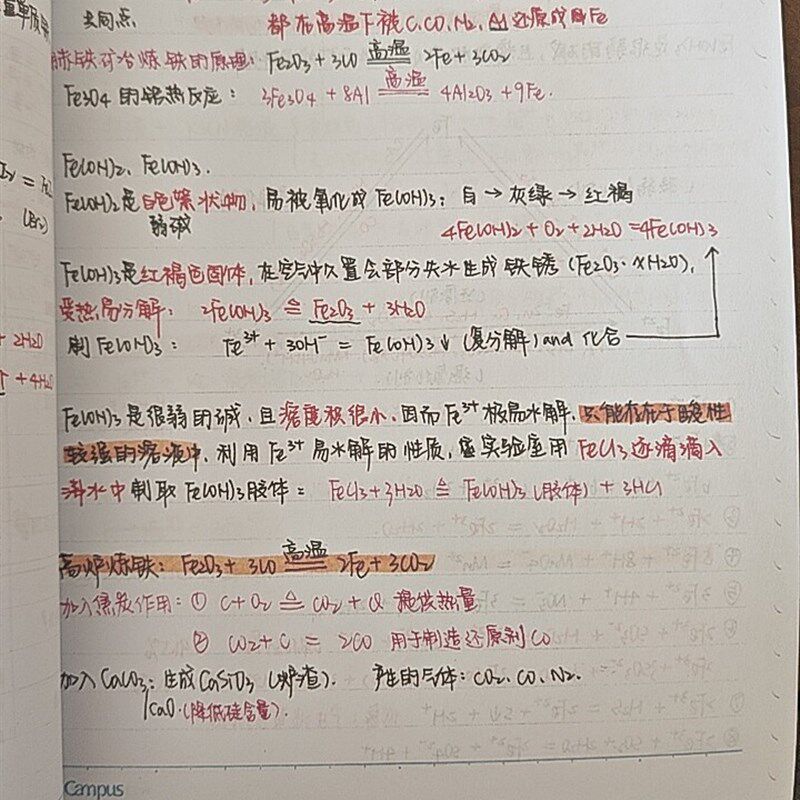 共同点   都在高温下被C、CO、H₂、Al还原成Fe
赤铁矿冶炼铁的原理: Fe₂O₃ + 3CO 高温 2Fe + 3CO₂
Fe₃O₄的铝热反应: 3Fe₃O₄ + 8Al 高温 4Al₂O₃ + 9Fe.
Fe(OH)₂、Fe(OH)₃.
Fe(OH)₂是白色絮状物, 易被氧化成Fe(OH)₃: 白→灰绿→红褐
弱碱   4Fe(OH)₂ + O₂ + 2H₂O = 4Fe(OH)₃
Fe(OH)₃是红褐色固体, 在空气中久置会部分失水生成铁锈 (Fe₂O₃·xH₂O),
受热易分解: 2Fe(OH)₃ ≜ Fe₂O₃ + 3H₂O
制Fe(OH)₃: Fe³⁺ + 3OH⁻ = Fe(OH)₃↓ (复分解) and 化合
+ 2H₂O
+ 4H₂O
Fe(OH)₃是很弱的碱, 且溶度积很小, 因而Fe³⁺极易水解, 只能存在于酸性
较强的溶液中, 利用Fe³⁺易水解的性质, 实验室用FeCl₃逐滴滴入
沸水中制取Fe(OH)₃胶体: FeCl₃ + 3H₂O ≜ Fe(OH)₃ (胶体) + 3HCl
高炉炼铁: Fe₂O₃ + 3CO 高温 2Fe + 3CO₂
加入焦炭作用: ① C + O₂ ≜ CO₂ + Q 提供热量
② CO₂ + C = 2CO 用于制造还原剂CO
加入CaCO₃: 生成CaSiO₃ (炉渣). 产生的气体: CO₂、CO、N₂.
/CaO. (降低硅含量).
Campus